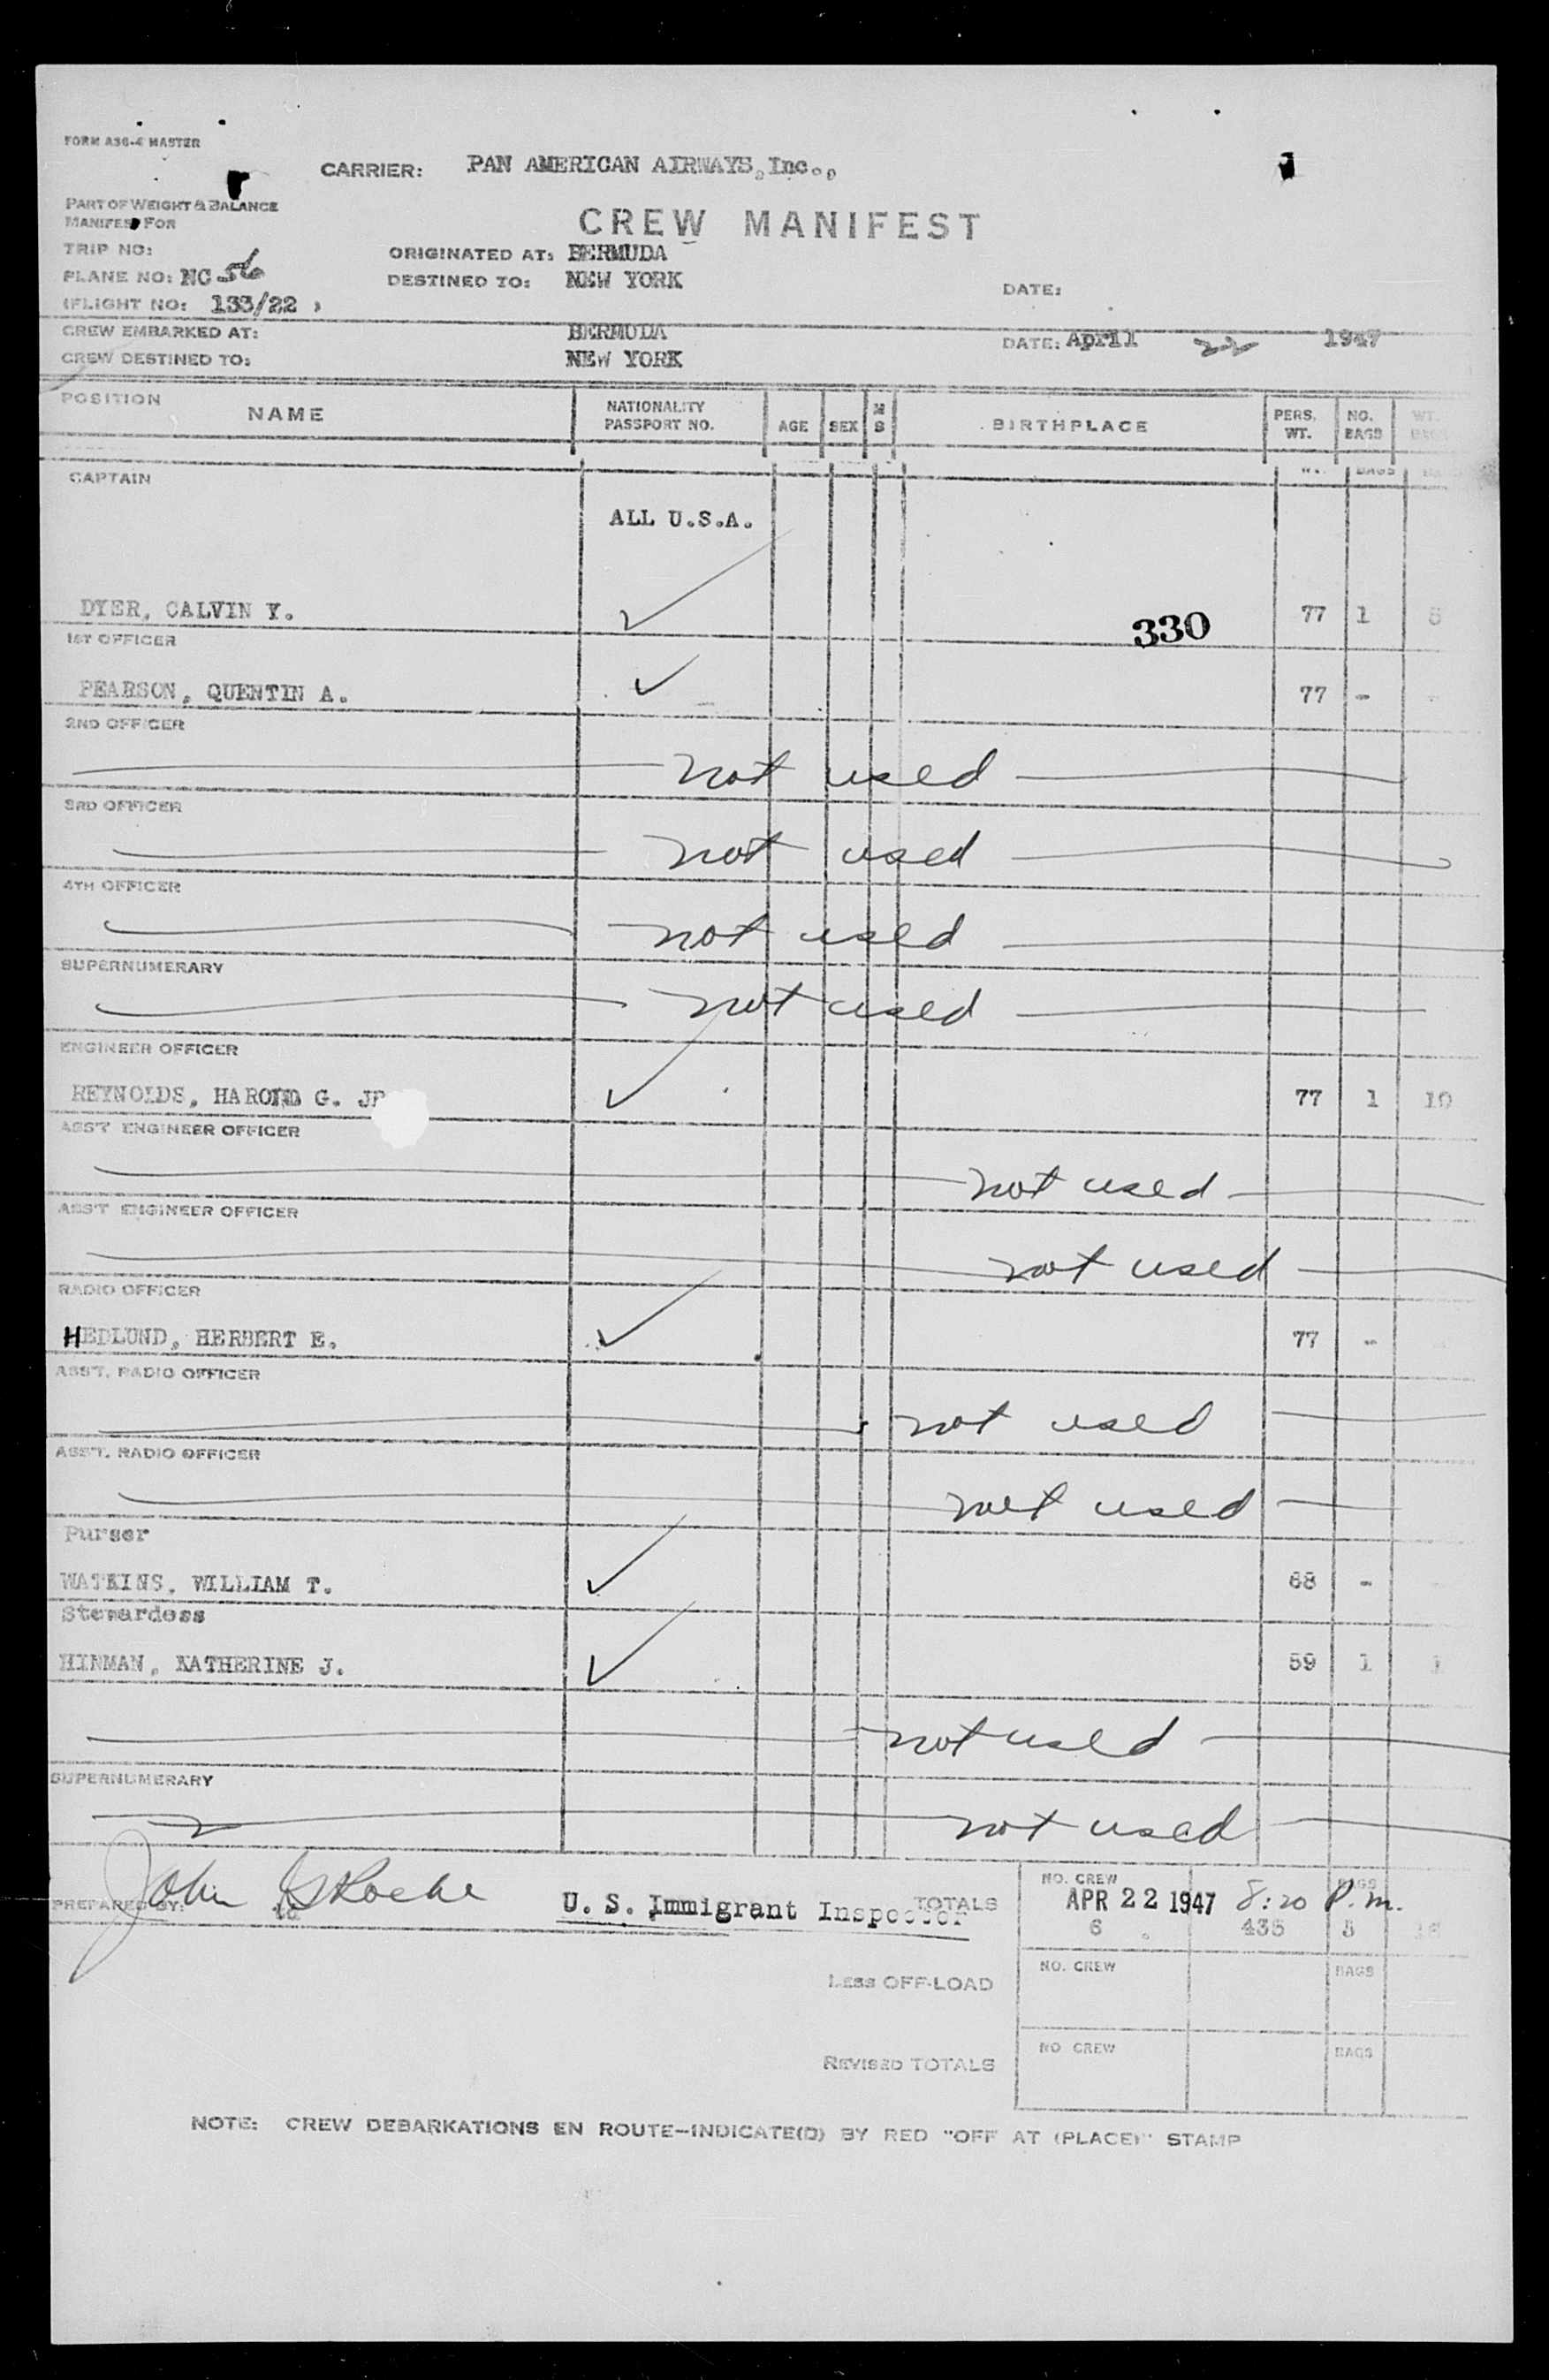 FORM A36-4 MASTER
CARRIER: PAN AMERICAN AIRWAYS, Inc.,
PART OF WEIGHT & BALANCE
MANIFEST FOR
CREW MANIFEST
TRIP NO:
ORIGINATED AT: BERMUDA
PLANE NO: NC 56
DESTINED TO: NEW YORK
DATE:
(FLIGHT NO: 133/22 )
CREW EMBARKED AT: BERMUDA
DATE: April 22 1947
CREW DESTINED TO: NEW YORK
POSITION NAME NATIONALITY PASSPORT NO. AGE SEX M S BIRTHPLACE PERS. WT. NO. BAGS WT. BAGS
CAPTAIN
ALL U.S.A.
DYER, CALVIN Y. ✓ 330 77 1 5
1ST OFFICER
PEARSON, QUENTIN A. ✓ 77 -
2ND OFFICER
not used
3RD OFFICER
not used
4TH OFFICER
not used
SUPERNUMERARY
not used
ENGINEER OFFICER
REYNOLDS, HAROLD G. JR ✓ 77 1 10
ASS'T ENGINEER OFFICER
not used
ASS'T ENGINEER OFFICER
not used
RADIO OFFICER
HEDLUND, HERBERT E. ✓ 77 -
ASS'T. RADIO OFFICER
not used
ASS'T. RADIO OFFICER
not used
Purser
WATKINS, WILLIAM T. ✓ 68 -
Stewardess
HINMAN, KATHERINE J. ✓ 59 1 1
not used
SUPERNUMERARY
not used
PREPARED BY: John Roche
U. S. Immigrant Inspector
TOTALS
NO. CREW BAGS
APR 22 1947 8:20 P.m.
6 435 3 16
LESS OFF-LOAD NO. CREW BAGS
REVISED TOTALS NO CREW BAGS
NOTE: CREW DEBARKATIONS EN ROUTE-INDICATE(D) BY RED "OFF AT (PLACE)" STAMP